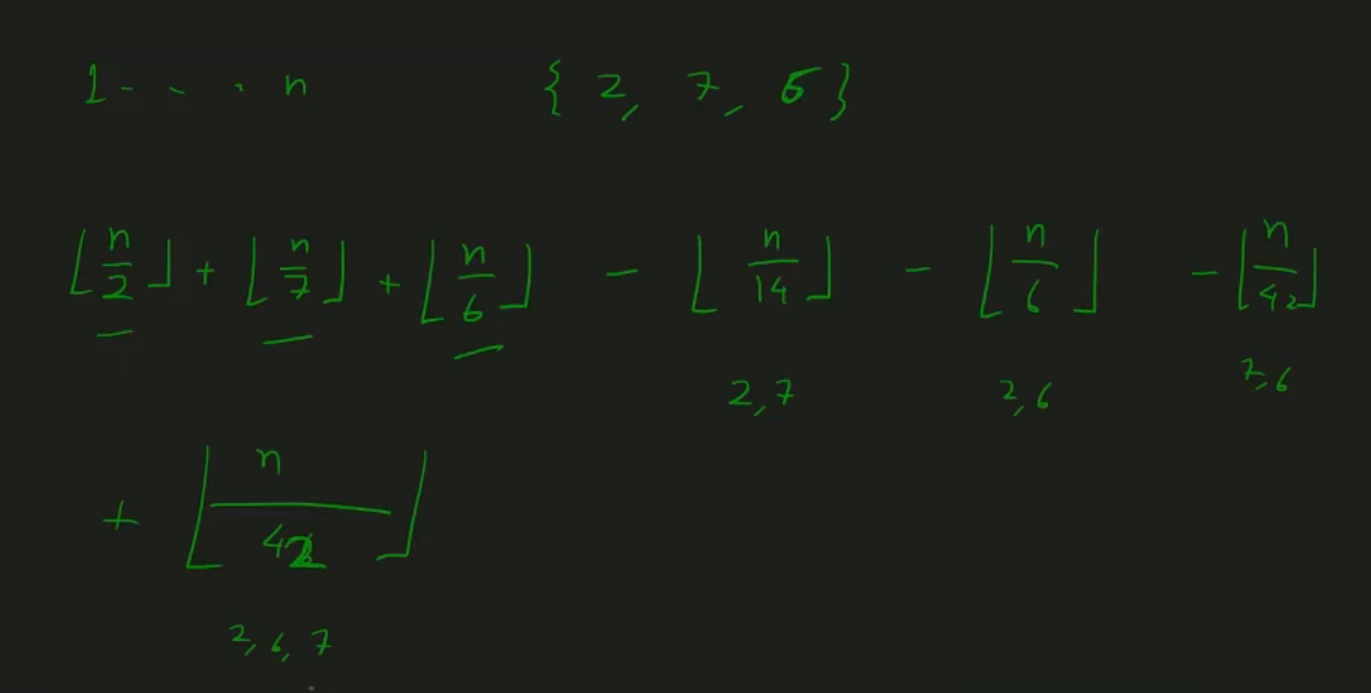 1 - - . n { 2, 7, 6 }
⌊n/2⌋ + ⌊n/7⌋ + ⌊n/6⌋ - ⌊n/14⌋ - ⌊n/6⌋ - ⌊n/42⌋
2,7 2,6 7,6
+ ⌊n/42⌋
2, 6, 7